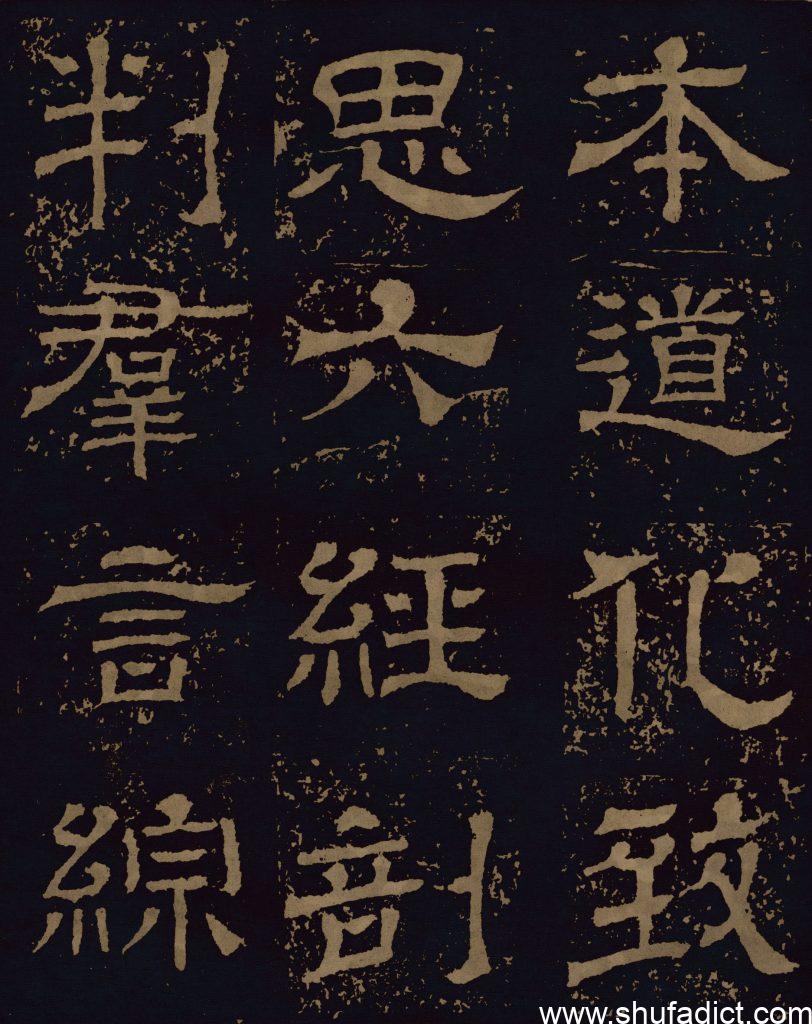 本道化致
思六經剖
判羣言綜
www.shufadict.com